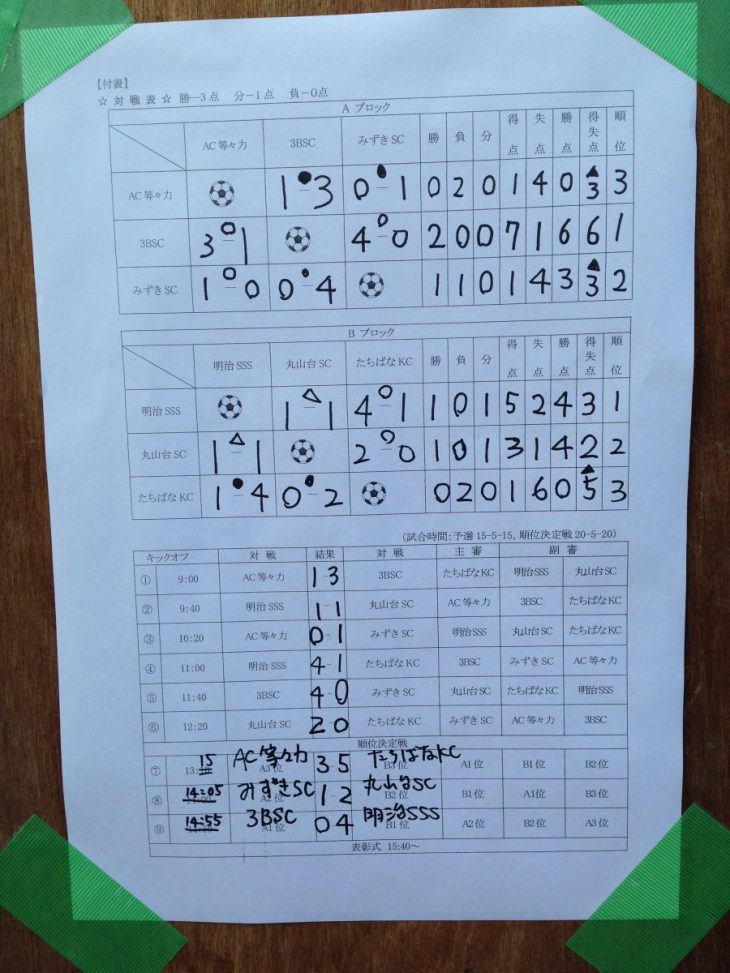 【付表】
☆ 対 戦 表 ☆ 勝―3点 分―1点 負―0点
A ブロック
AC 等々力 3BSC みずき SC 勝 負 分 得点 失点 勝点 得失点 順位
AC 等々力 1 ● 3 0 ● 1 0 2 0 1 4 0 ▲3 3
3BSC 3 ○ 1 4 ○ 0 2 0 0 7 1 6 6 1
みずき SC 1 ○ 0 0 ● 4 1 1 0 1 4 3 ▲3 2
B ブロック
明治 SSS 丸山台 SC たちばな KC 勝 負 分 得点 失点 勝点 得失点 順位
明治 SSS 1 △ 1 4 ○ 1 1 0 1 5 2 4 3 1
丸山台 SC 1 △ 1 2 ○ 0 1 0 1 3 1 4 2 2
たちばな KC 1 ● 4 0 ● 2 0 2 0 1 6 0 ▲5 3
(試合時間:予選 15-5-15, 順位決定戦 20-5-20)
キックオフ 対 戦 結果 対 戦 主 審 副 審
① 9:00 AC 等々力 1-3 3BSC たちばな KC 明治 SSS 丸山台 SC
② 9:40 明治 SSS 1-1 丸山台 SC AC 等々力 3BSC たちばな KC
③ 10:20 AC 等々力 0-1 みずき SC 明治 SSS 丸山台 SC たちばな KC
④ 11:00 明治 SSS 4-1 たちばな KC 3BSC みずき SC AC 等々力
⑤ 11:40 3BSC 4-0 みずき SC 丸山台 SC たちばな KC 明治 SSS
⑥ 12:20 丸山台 SC 2-0 たちばな KC みずき SC AC 等々力 3BSC
順位決定戦
⑦ 13: 15 AC等々力 A3 位 3 5 たちばなKC B3 位 A1 位 B1 位 B2 位
⑧ 14:05 みずきSC A2 位 1-2 丸山台SC B2 位 B1 位 A1 位 B3 位
⑨ 14:55 3BSC A1 位 0 4 明治SSS B1 位 A2 位 B2 位 A3 位
表彰式 15:40～